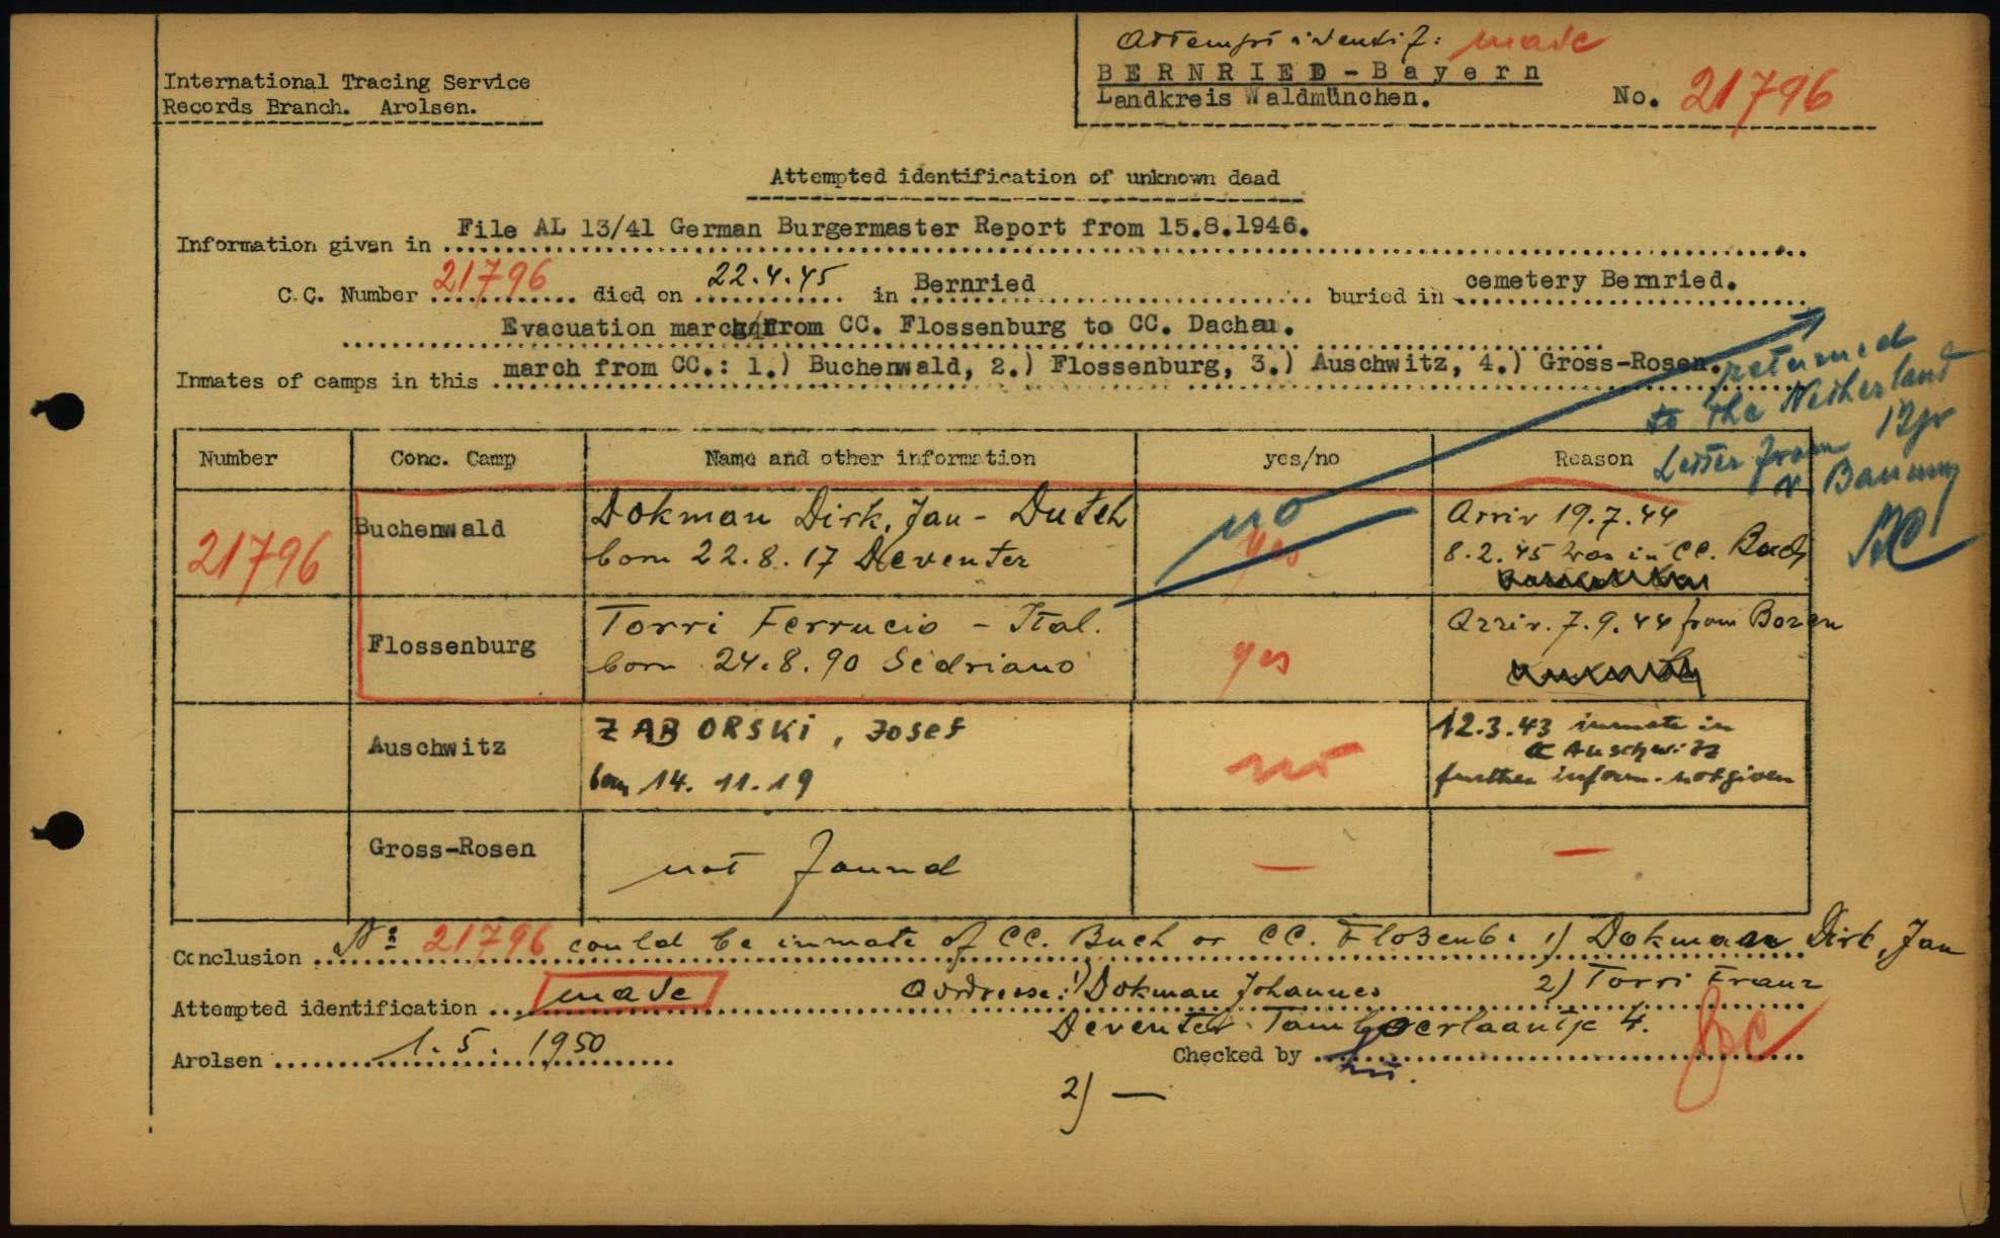 Attempt identif: made
International Tracing Service
Records Branch. Arolsen.
BERNRIED - Bayern
Landkreis Waldmünchen.
No. 21796
Attempted identification of unknown dead
Information given in File AL 13/41 German Burgermaster Report from 15.8.1946.
C.C. Number 21796 died on 22.4.45 in Bernried buried in cemetery Bernried.
Evacuation march from CC. Flossenburg to CC. Dachau.
Inmates of camps in this march from CC.: 1.) Buchenwald, 2.) Flossenburg, 3.) Auschwitz, 4.) Gross-Rosen.
returned
to the Netherland
Letter from
v.
Number Conc. Camp Name and other information yes/no Reason
21796 Buchenwald Dokman Dirk, Jan - Dutch
born 22.8.17 Deventer
no
yes
Arriv 19.7.44
8.2.45 was in CC. Buch
Flossenburg Torri Ferrucio - Ital.
born 24.8.90 Sedriano
yes
Arriv. 7.9.44 from Bozen
Auschwitz ZABORSKI, Josef
born 14. 11. 19
no
12.3.43 inmate in
CC Auschwitz
further inform. not given
Gross-Rosen not found — —
Conclusion No 21796 could be inmate of CC. Buch or CC. Floßenb. 1) Dokman Dirk, Jan
2) Torri Franz
Attempted identification made
Addresse: 1) Dokman Johannes
Deventer Tamboerlaantje 4.
Arolsen 1. 5. 1950
Checked by
2) —